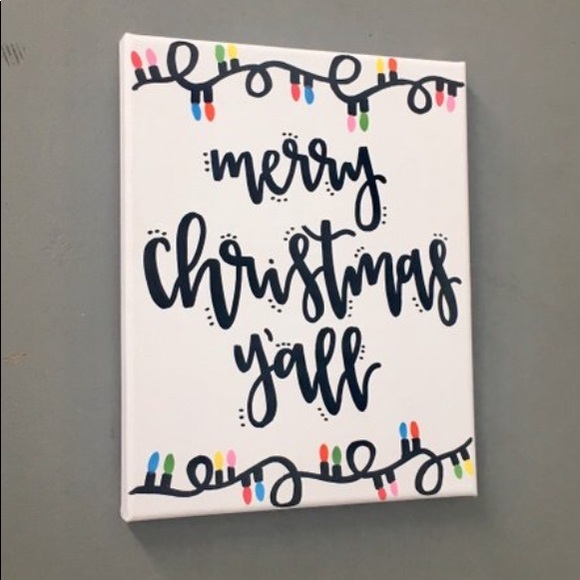 merry
christmas
y'all